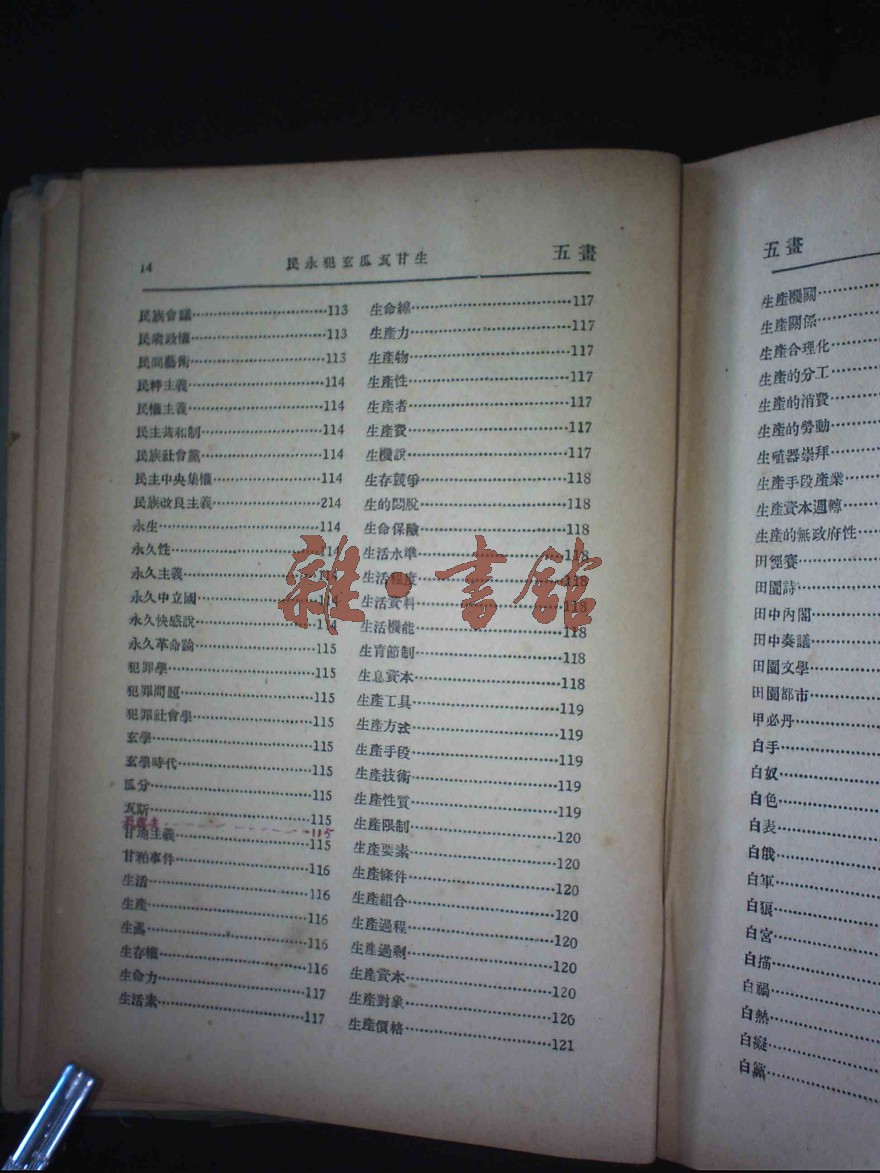 14 民永犯玄瓜瓦甘生 五畫
民族會議……113
民衆政權……113
民間藝術……113
民粹主義……114
民權主義……114
民主共和制……114
民族社會黨……114
民主中央集權……114
民族改良主義……214
永生……114
永久性……114
永久主義……114
永久中立國……114
永久快感說……114
永久革命論……115
犯罪學……115
犯罪問題……115
犯罪社會學……115
玄學……115
玄學時代……115
瓜分……115
瓦斯……115
115
甘地主義……115
甘粕事件……116
生活……116
生產……116
生……116
生存權……116
生命力……117
生活素……117
生命線……117
生產力……117
生產物……117
生產性……117
生產者……117
生產費……117
生機說……117
生存競爭……118
生的悶脫……118
生命保險……118
生活水準……118
生活程度……118
生活資料……118
生活機能……118
生育節制……118
生息資本……118
生產工具……119
生產方式……119
生產手段……119
生產技術……119
生產性質……119
生產限制……120
生產要素……120
生產條件……120
生產組合……120
生產過程……120
生產過剩……120
生產資本……120
生產對象……120
生產價格……121
五畫
生產機關……
生產關係……
生產合理化……
生產的分工……
生產的消費……
生產的勞動……
生殖器崇拜……
生產手段產業……
生產資本週轉……
生產的無政府性……
田徑賽……
田園詩……
田中內閣……
田中奏議……
田園文學……
田園都市……
甲必丹……
白手……
白奴……
白色……
白表……
白俄……
白軍……
白狼……
白宮……
白描……
白禍……
白熱……
白癡……
白黨……
雜·書館